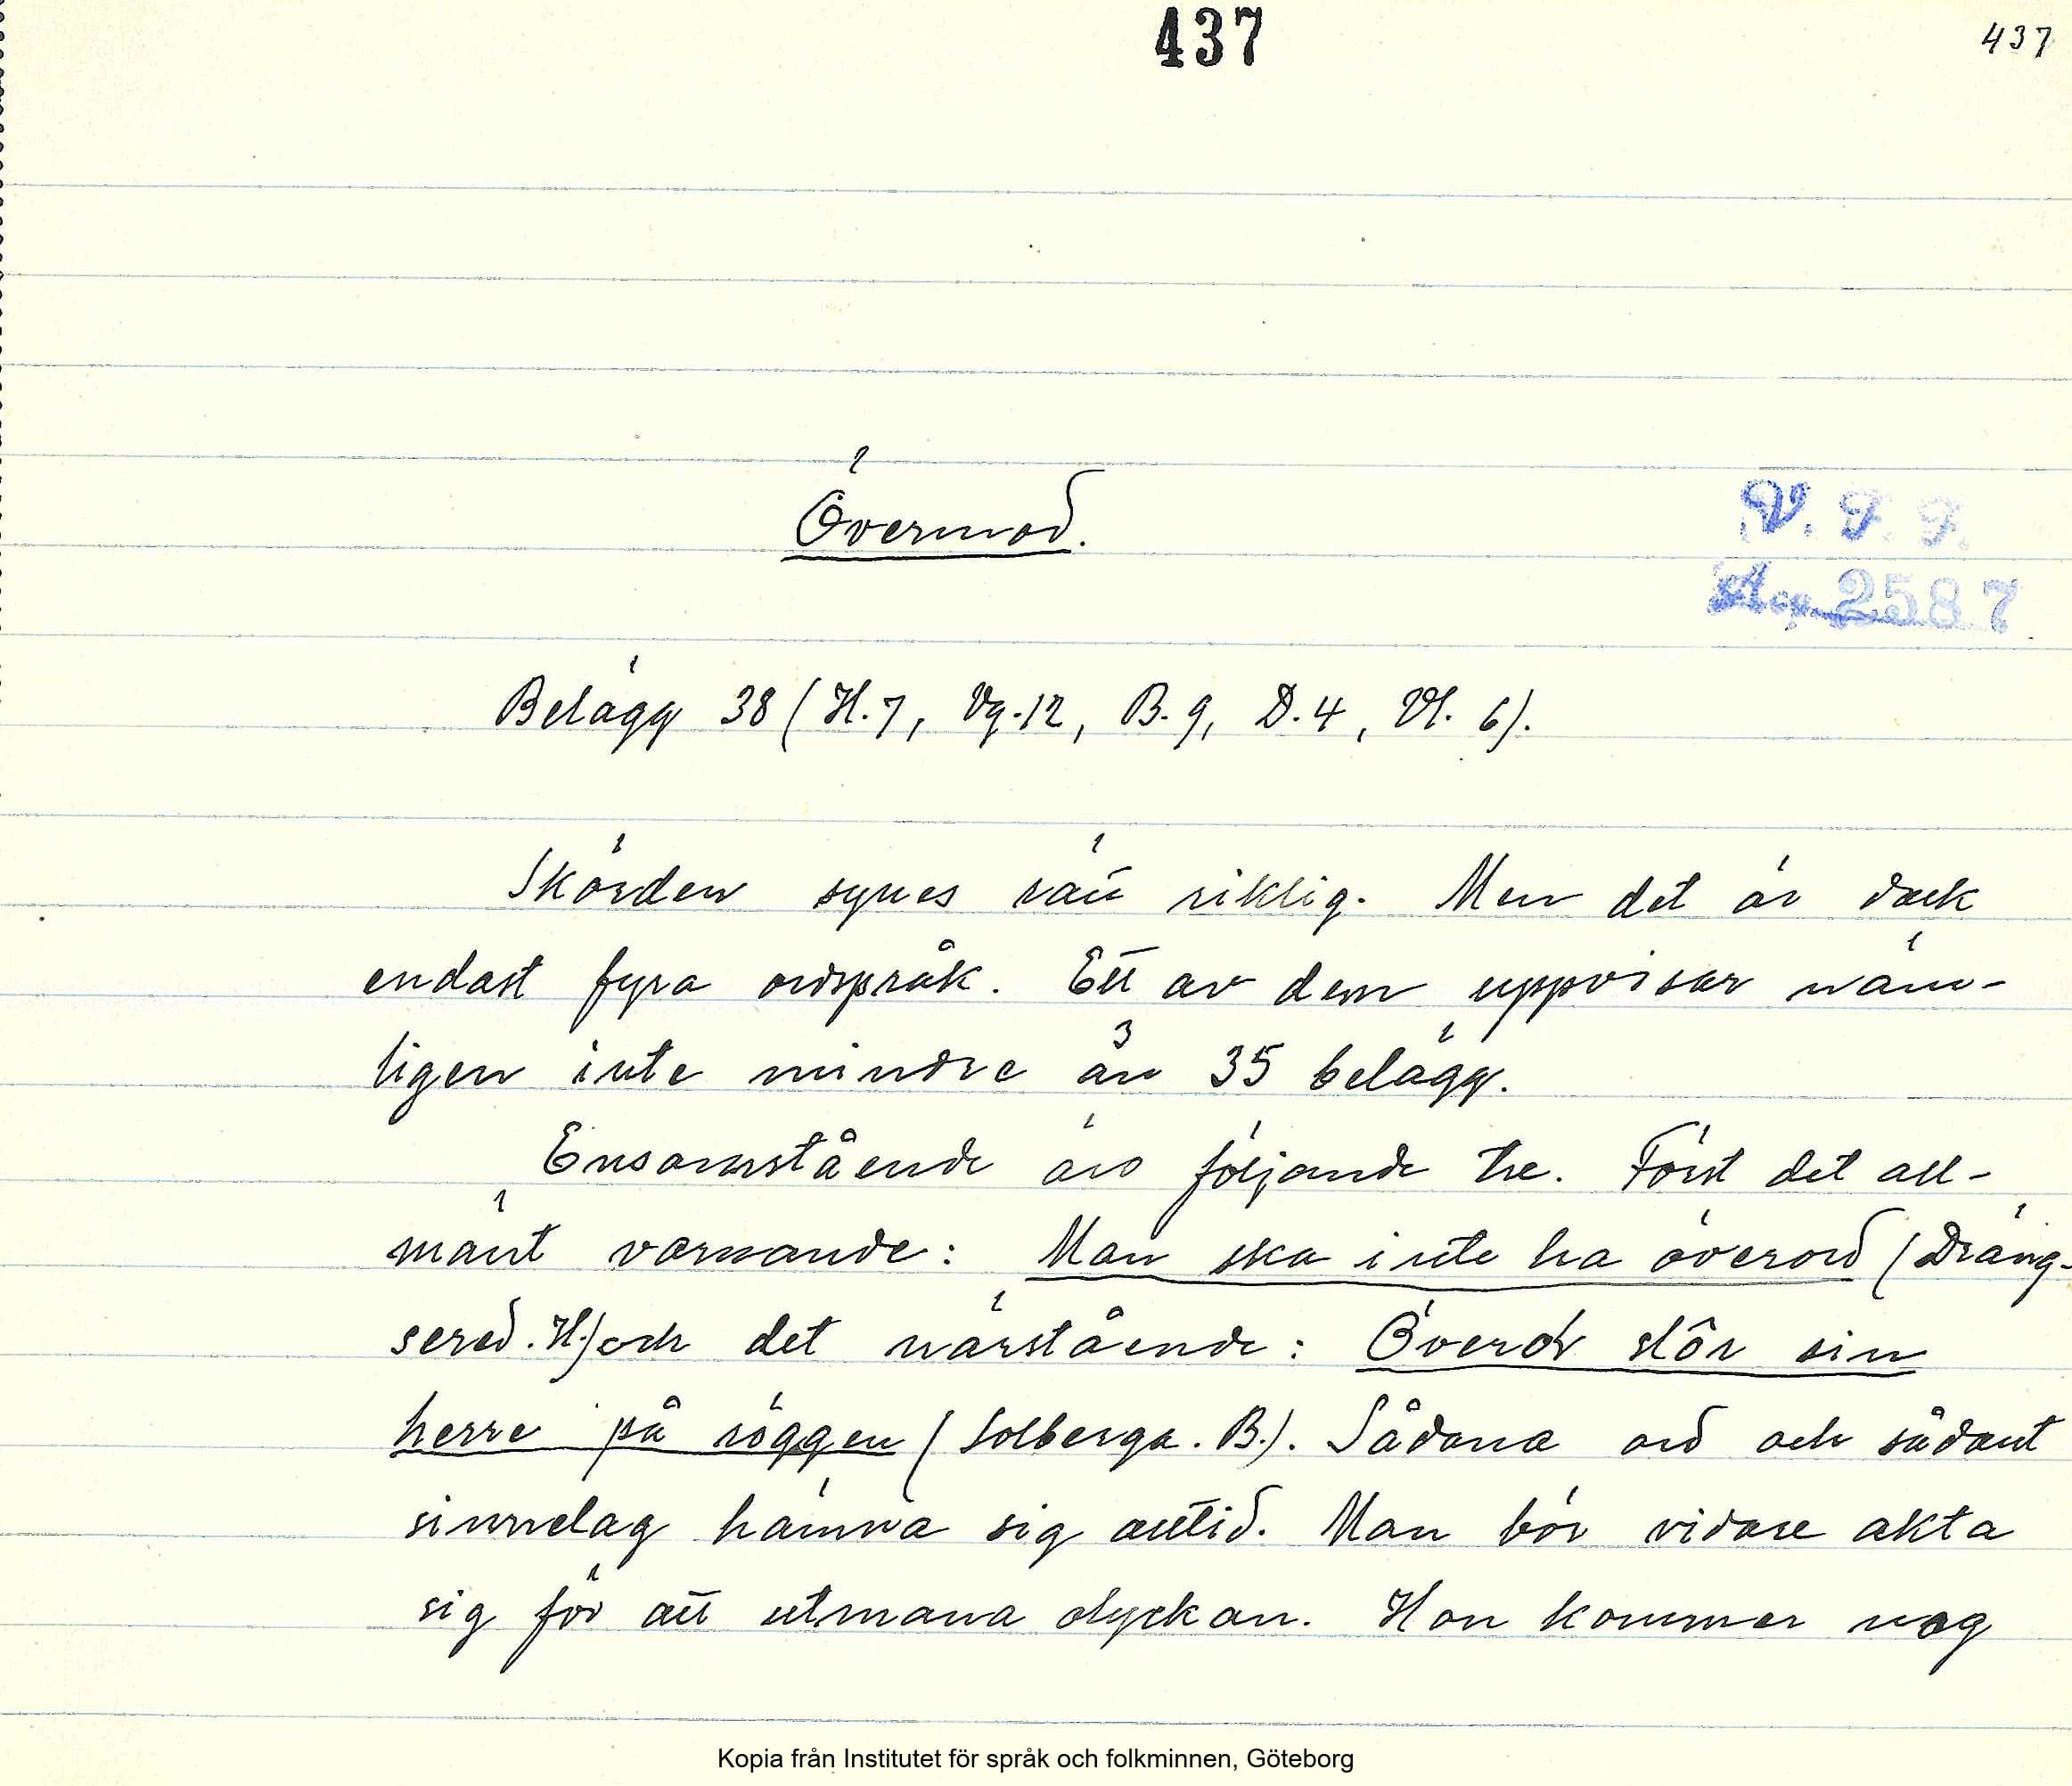 437
437
Övermod.
V. F. F.
Acc. 2587
Belägg 38 (H. 7, Vg. 12, B. 9, D. 4, Vl. 6).
Skörden synes rätt riklig. Men det är dock
endast fyra ordspråk. Ett av dem uppvisar näm-
ligen inte mindre än 35 belägg.
Ensamstående äro följande tre. Först det all-
mänt varnande: Man ska inte ha överord (Dräng-
sered. H.) och det närstående: slôr sin
herre på röggen (Solberga. B.). Sådana ord och sådant
sinnelag hämna sig alltid. Man bör vidare akta
sig för att utmana olyckan. Hon kommer nog
Kopia från Institutet för språk och folkminnen, Göteborg